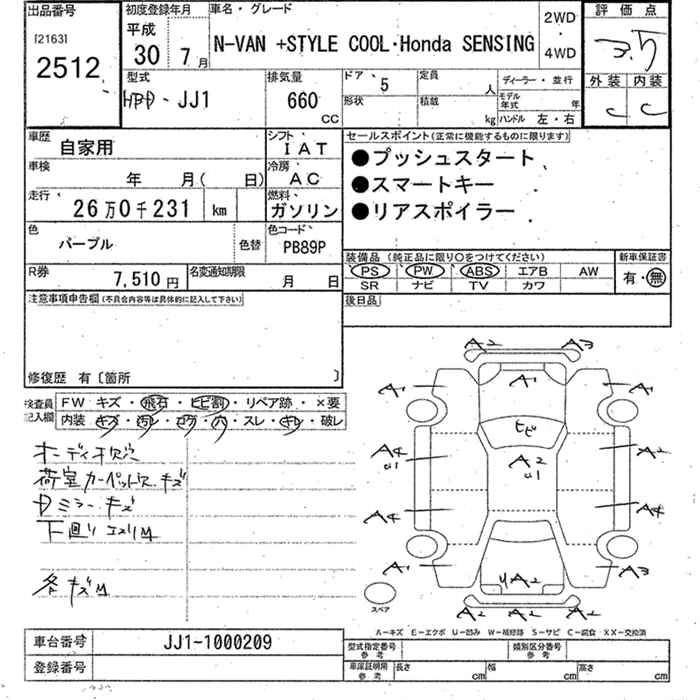 出品番号
[2163]
2512
初度登録年月
平成
30 7月
車名・グレード
N-VAN +STYLE COOL・Honda SENSING
2WD
・
4WD
評価点
3.5
外装 内装
C C
型式
HBD-JJ1
排気量
660
CC
ドア 5
定員
人
ディーラー・並行
形状
積載
kg
モデル年式
年
ハンドル 左・右
車歴 自家用
シフト IAT
車検 年 月( 日)
冷房 AC
走行 26万0千231 km
燃料 ガソリン
色 パープル
色替
色コード PB89P
R券 7,510円
名変通知期限 月 日
セールスポイント(正常に機能するものに限ります)
●プッシュスタート
●スマートキー
●リアスポイラー
装備品 (純正品に限り○をつけてください)
PS PW ABS エアB AW
SR ナビ TV カワ
新車保証書
有・無
後日品
注意事項申告欄(不具合内容等は具体的に記入して下さい)
修復歴 有〔箇所 〕
検査員記入欄
FW キズ・飛石・ヒビ割・リペア跡・×要
内装 キズ・汚レ・コゲ・穴・スレ・キレ・破レ
オーディオ欠穴
荷室カーペット欠 キズ
Dミラーキズ
下廻リ
各キズ
A2 A3
A1 A1 A1
ヒビ
A4 U1
A2 U1
A2
A4 A4
A1 A3
A2
A2 A2 A2
スペア
A-キズ E-エクボ U-凹み W-補修跡 S-サビ C-腐食 XX-交換済
車台番号 JJ1-1000209
登録番号
型式指定番号 参考
類別区分番号 参考
車庫証明用 参考
長さ cm 幅 cm 高さ cm